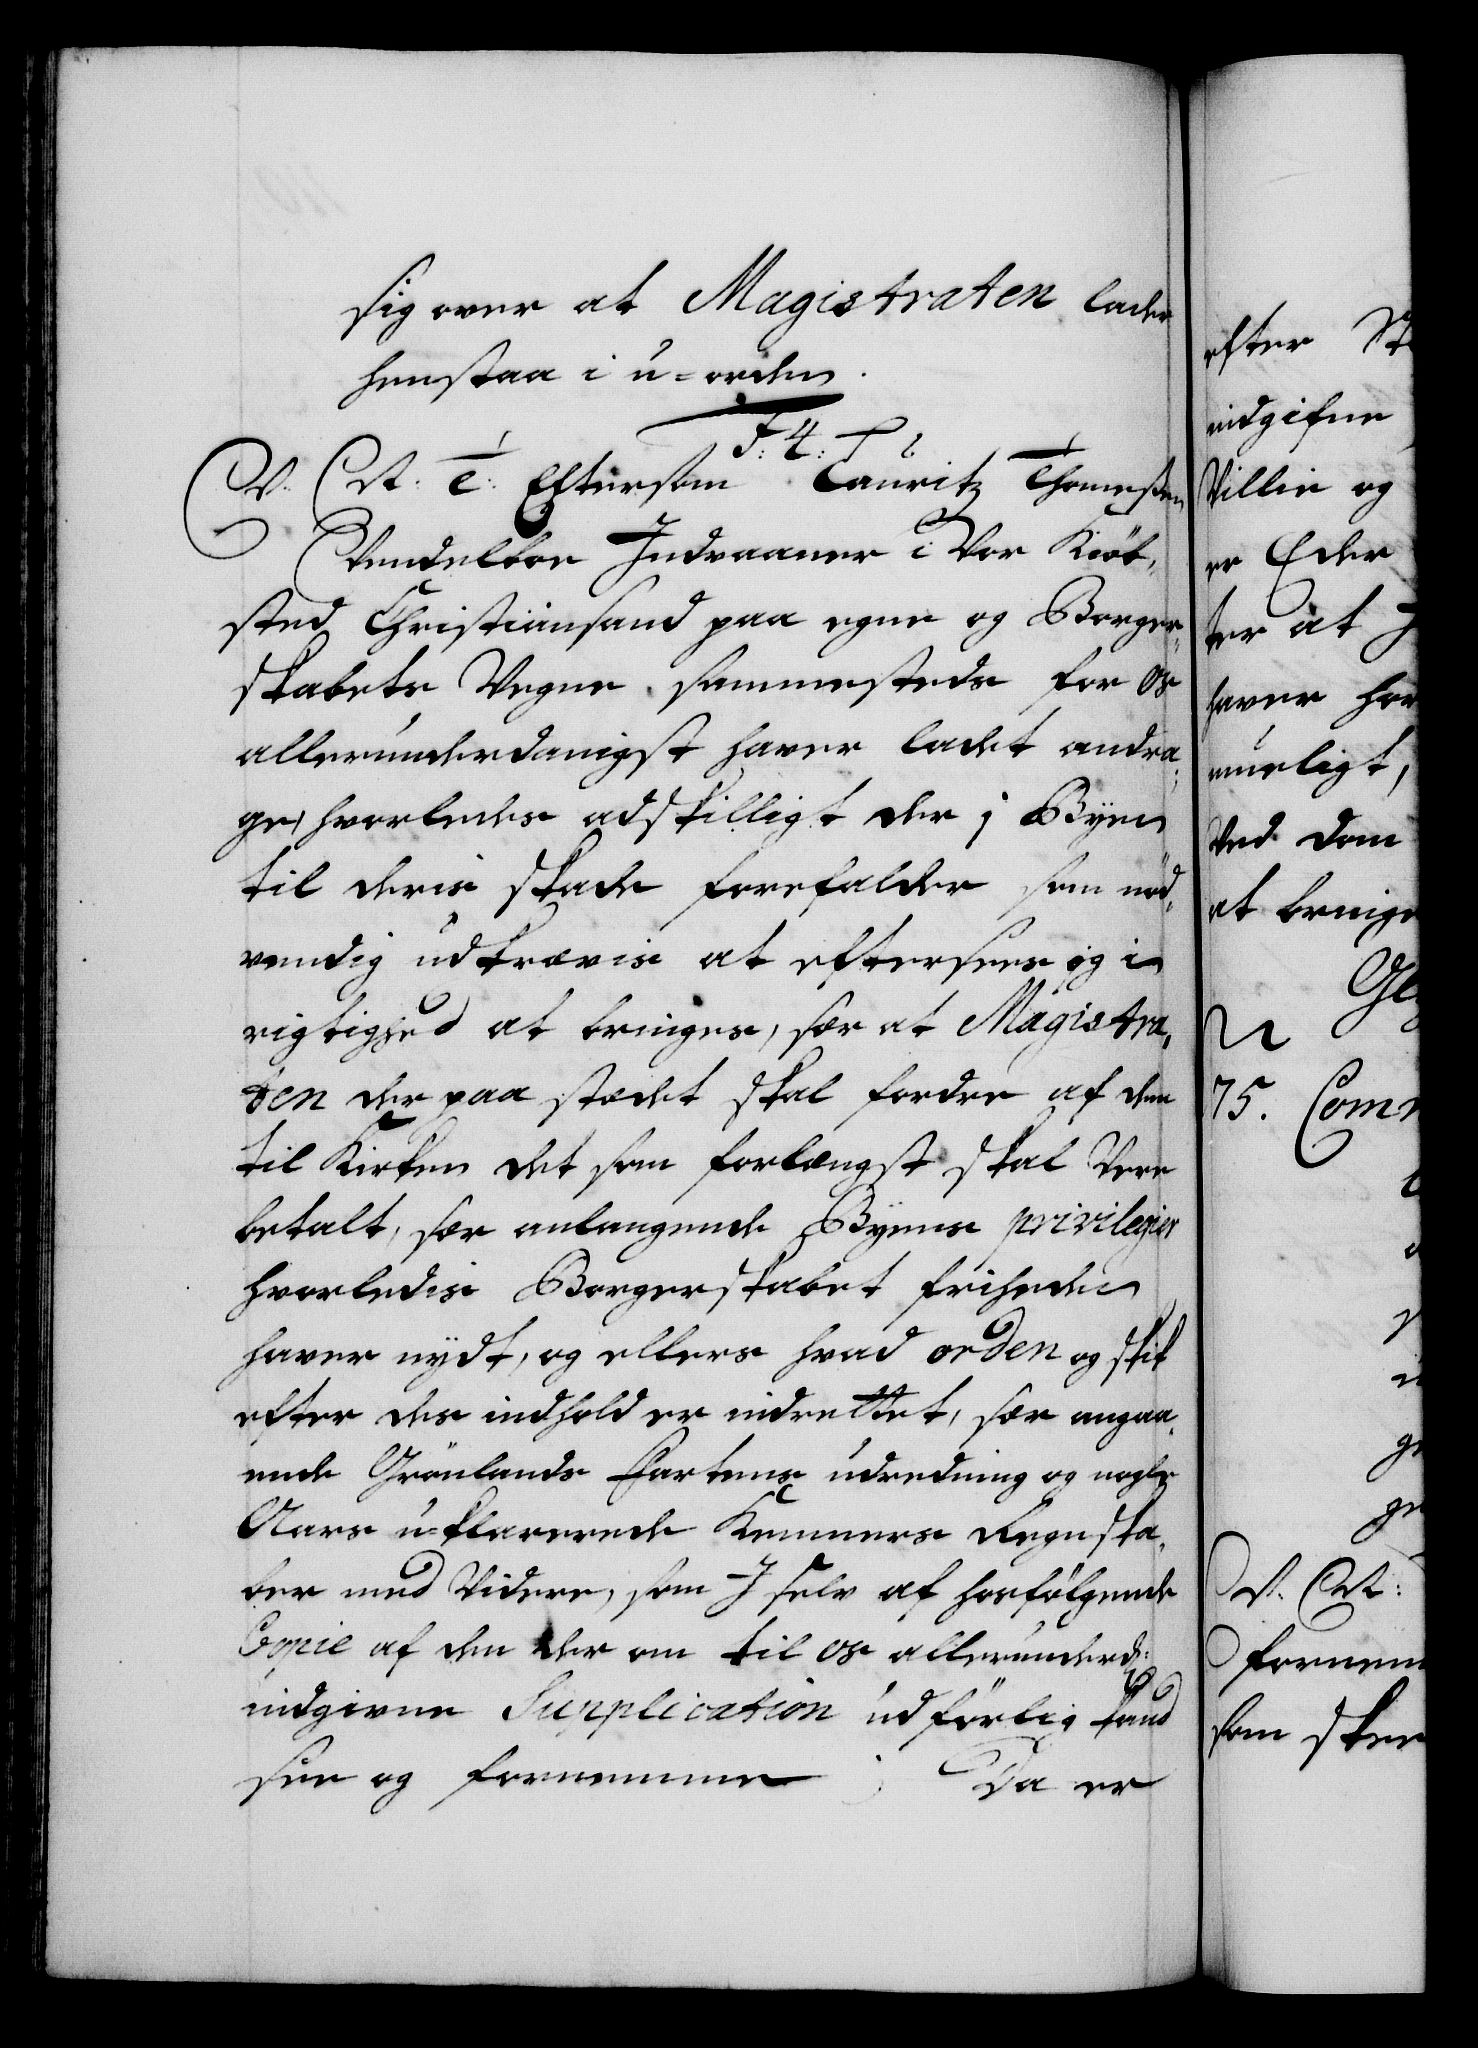 sig over at Magistraten lader
henstaa i u=orden.
F: 4:
V. C. A. T. Eftersom Lauritz Thomesen
Vendelboe Indvaaner i Vor Kiöb,
sted Christiansand paa egne og Borger,
skabets Vegne sammesteds for os
allerunderdanigst haver ladet andra,
ge, hvorledes adskilligt der i Byen
til deris skade forefalder som nød,
vendig udkrævis at eftersees og i
rigtighed at bringes, sær at Magistra,
ten der paa stædet skal fordre af dem
til Kirken det som forlængst skal Vere
betalt, sær anlangende Byens privilegier
hvorledis Borgerskabet friheden
haver nydt, og ellers hvad orden og skik
efter des indhold er indrettet, sær angaa,
ende Grönlands Fartens udredning og nogle
Aars u=klarerede Kemners Regnska,
ber med Videre, som I selv af hosfölgende
Copie af den der om til os allerunderd:
indgivne Supplication udförlig kand
see og fornemme; Da er
efter
indgifne
Villie og
er Eder
ter at I
haver
mueligt,
Ved dom
at bringe
75.
V. C. A:
fornem
som skee